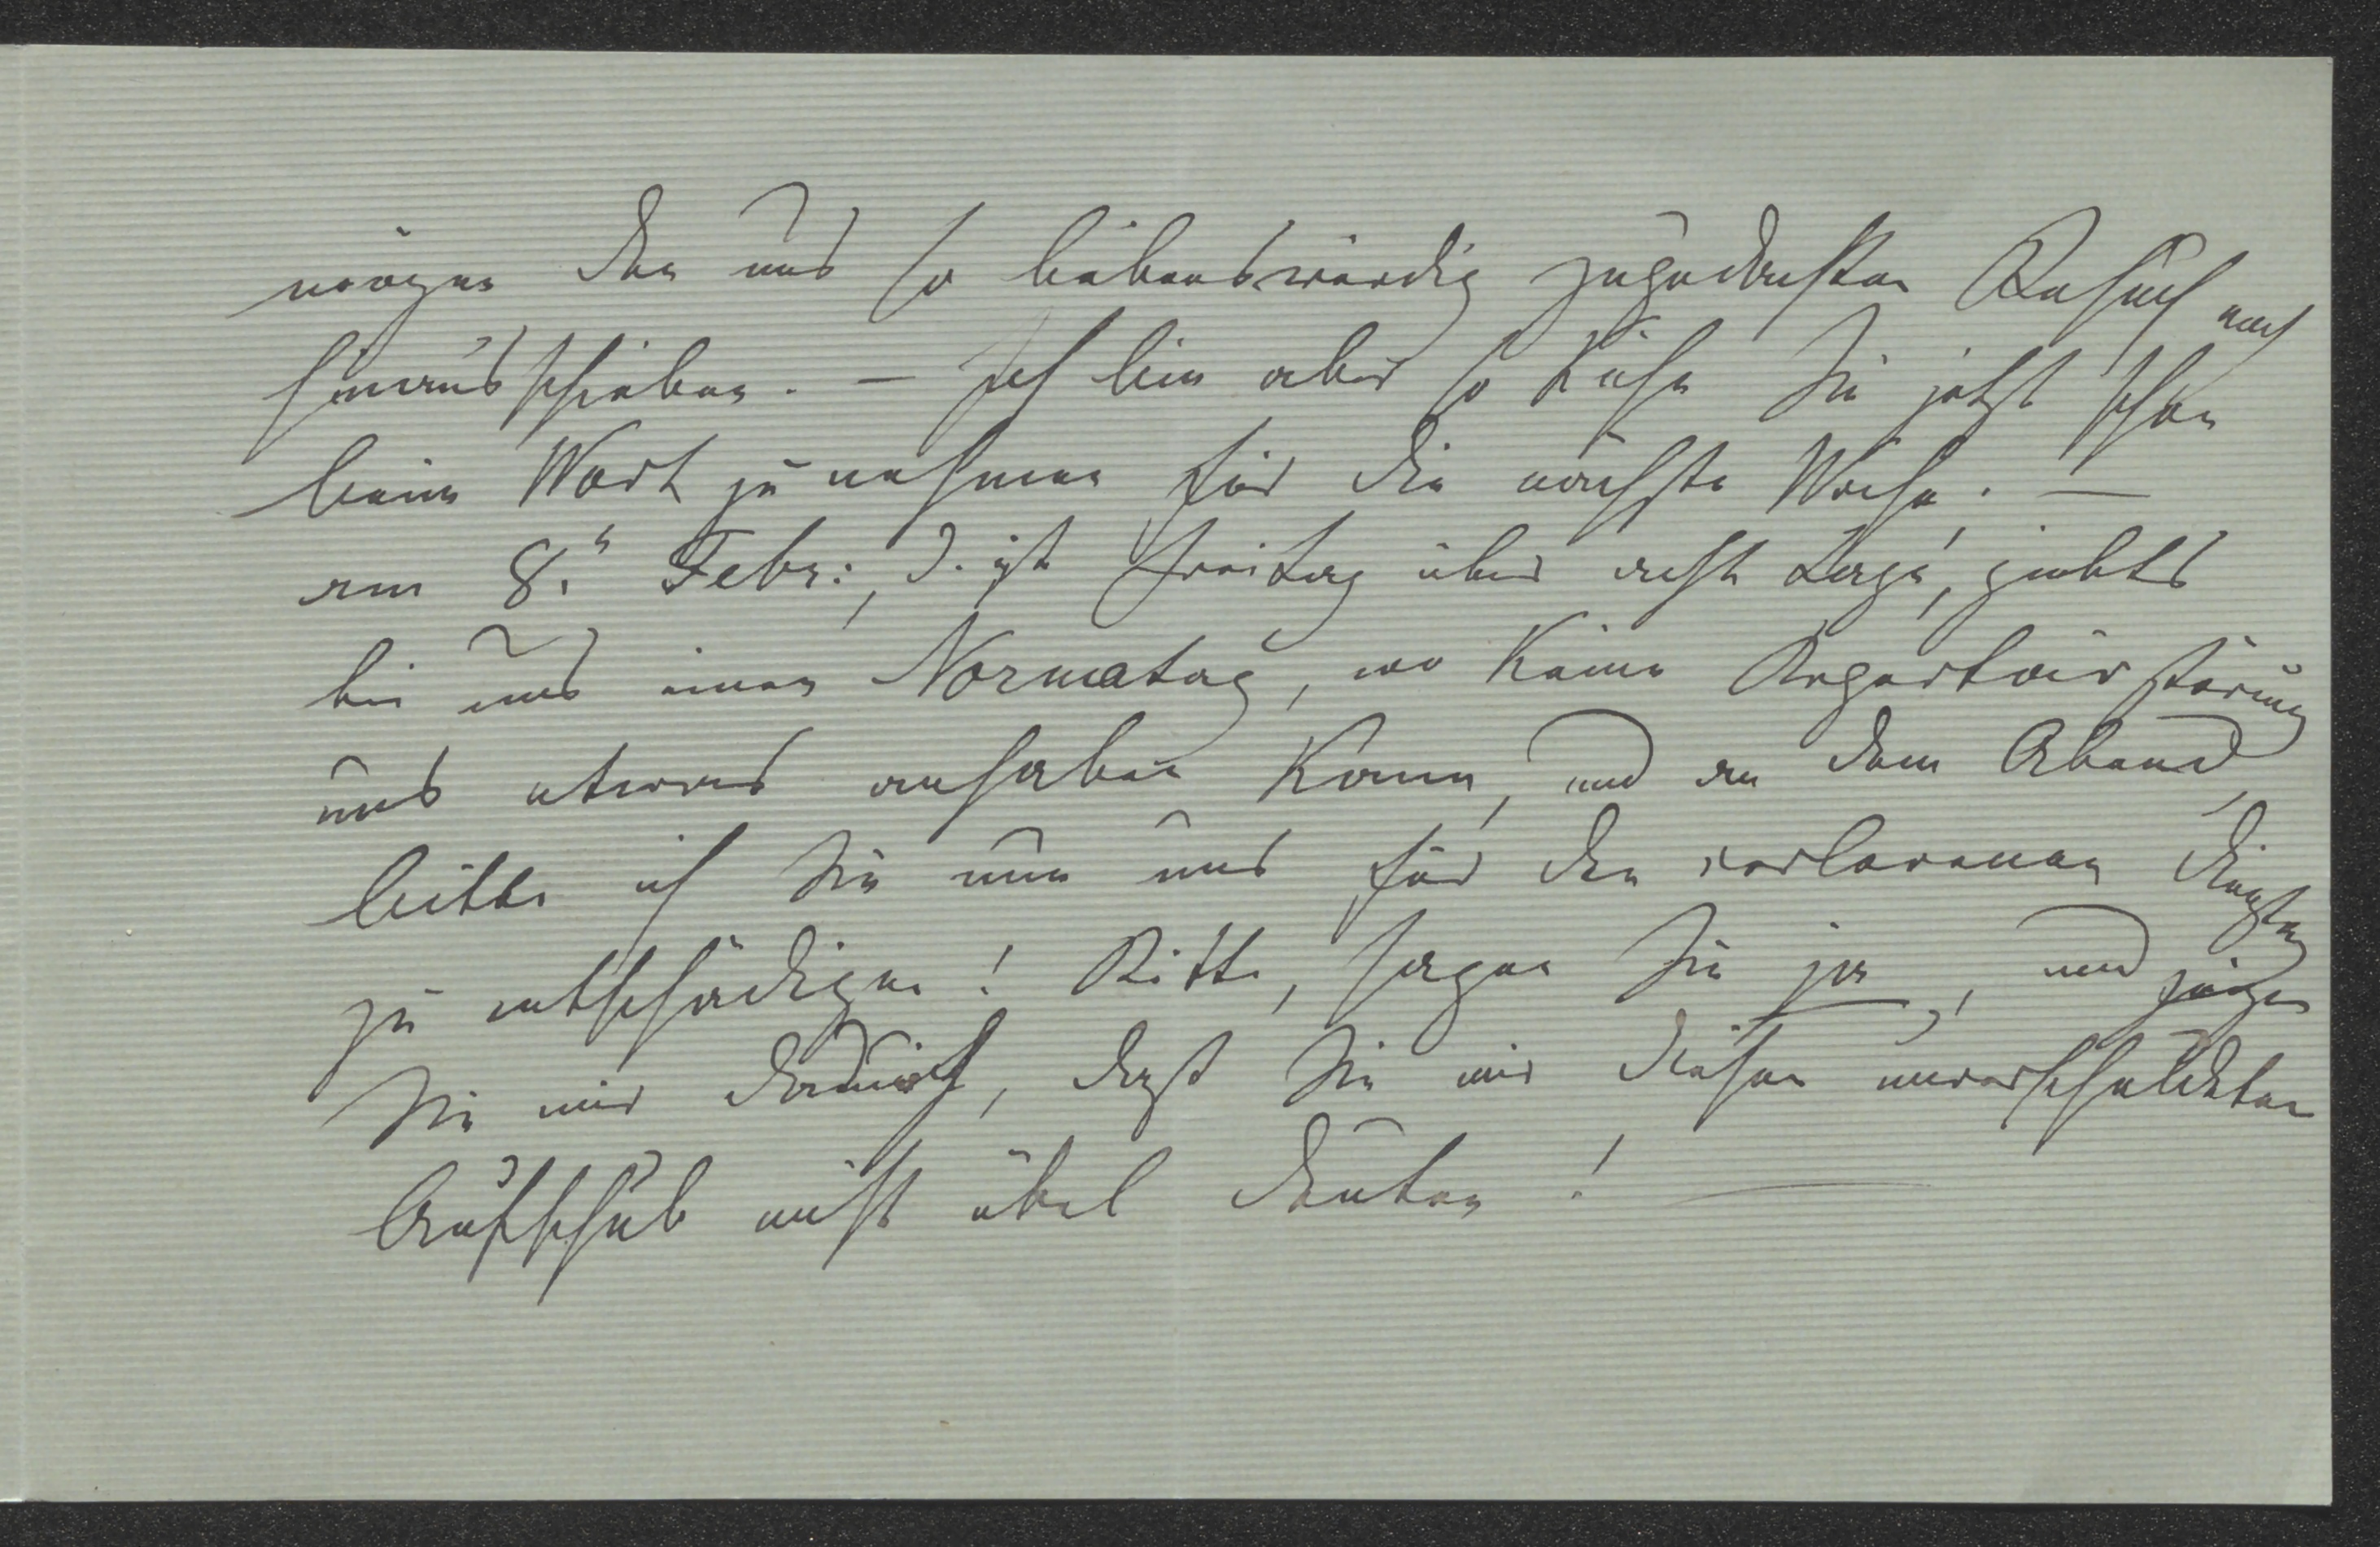 mögen den uns so liebenswürdig zugedachten Besuch noch
hinausschieben. – Ich bin aber so kühn Sie jetzt schon
beim Wort zu nehmen für die nächste Woche. –
am 8.n Febr:, d. ist Freitag über acht Tage, giebts
bei uns einen Normatag, wo keine Repertoirstörung
uns etwas anhaben kann, und an dem Abend,
bitte ich Sie nun uns für den verlorenen Dienstag
zu entschädigen! Bitte, sagen Sie ja, und zeigen
Sie mir dadurch, daß Sie mir diesen unverschuldeten
Aufschub nicht übel deuten! –